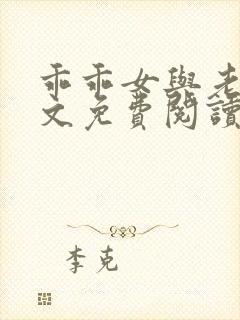 乖乖女與老
文免費閱讀
李克